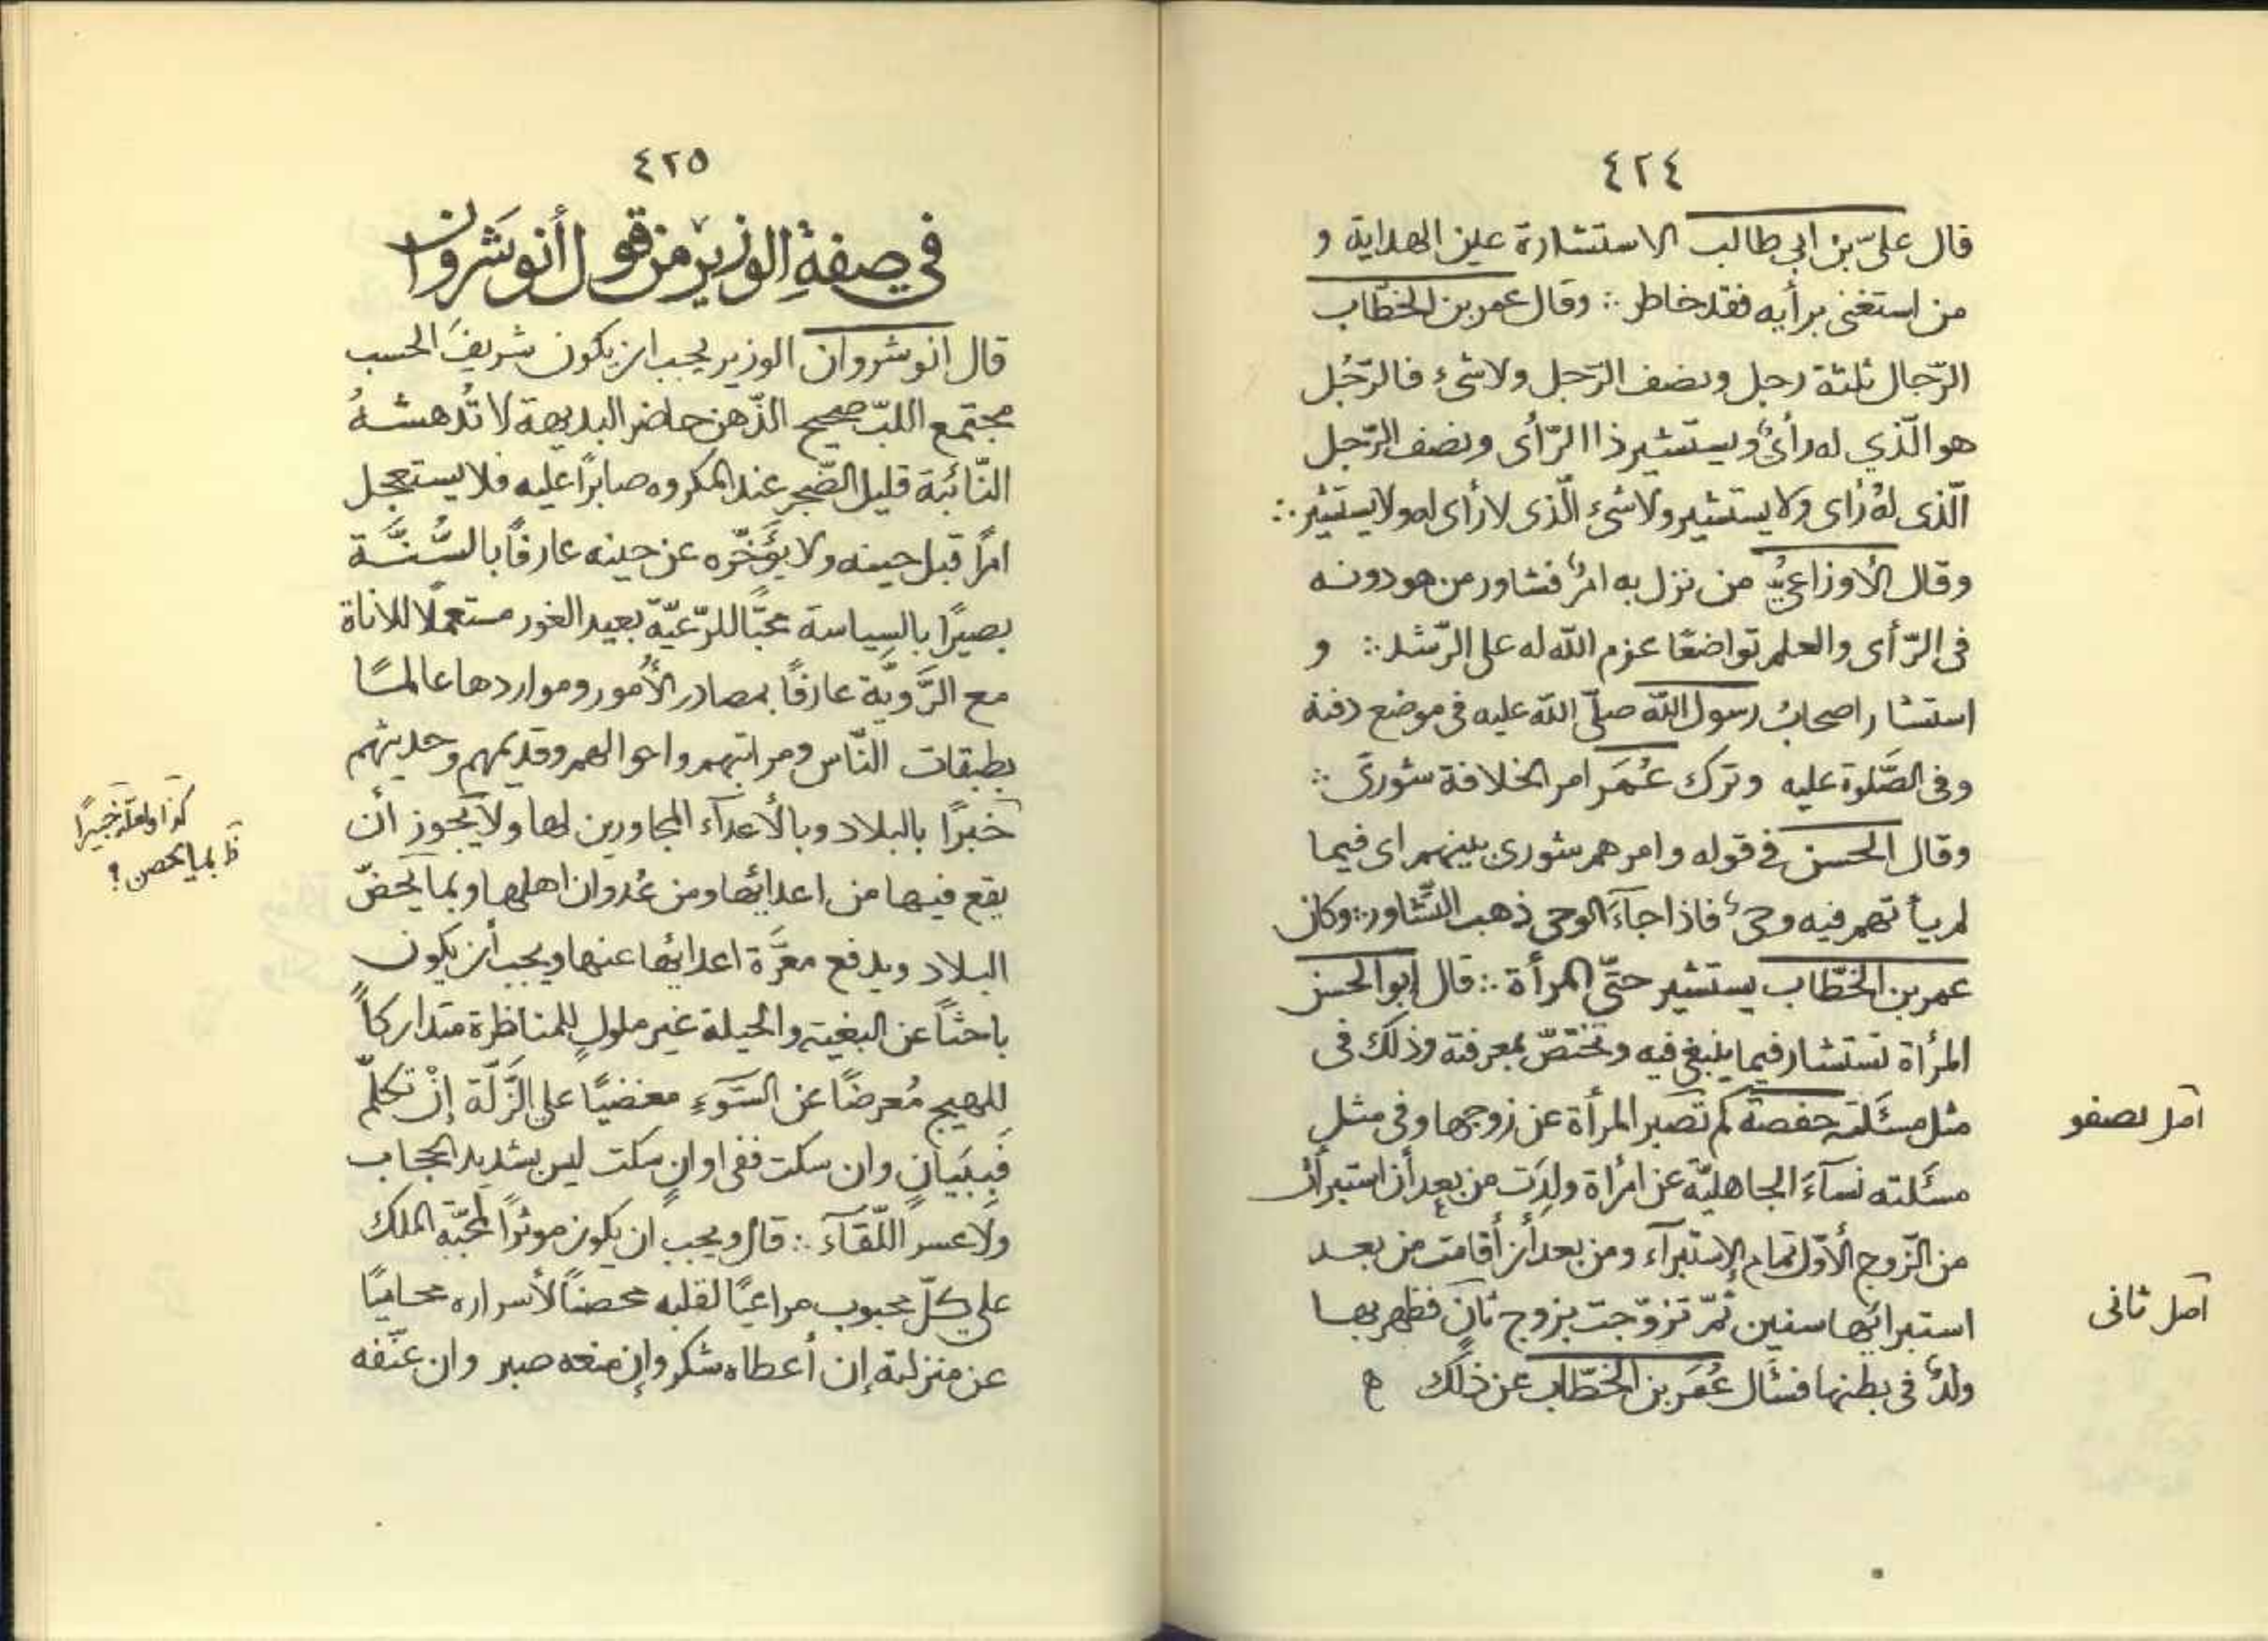 ٤٢٤
قال علىّ بن ابى طالب الاستشارة عين الهداية و
من استغنى برأيه فقد خاطر ∴ وقال عمر بن الخطّاب
الرّجال ثلثة رجل ونصف الرّجل ولا شئ فالرّجُل
هو الّذي له رأىٌ ويستشير ذا الرّأى ونصف الرّجل
الّذى لهُ رَاى ولا يستشير ولا شئ الّذى لا رأى له ولا يستشير ∴
وقال الأوزاعىُّ من نزل به امرٌ فشاور من هو دونه
فى الرّأى والعلم تواضعًا عزم الله له على الرّشد ∴ و
استشار اصحابُ رسول الله صلّى الله عليه فى موضع دفنه
وفى الصَّلوة عليه وترك عُمَر امر الخلافة شورىً ∴
وقال الحسن فى قوله وامرهم شورى بينهم اى فيما
لم يأتهم فيه وحىٌ فاذا جاءَ الوحى ذهب التّشاور ∴ وكان
عمر بن الخطّاب يستشير حتّى المرأة ∴ قال ابو الحسن
المرأة تستشار فيما ينبغى فيه وتختصّ بمعرفته وذلك فى
مثل مسئَلته حفصة كم تصبر المرأة عن زوجها وفى مثل
مسئَلته نسآءَ الجاهليّة عن امرأة ولِدَت من بعد أن استبرأت
من الزّوج الأوّل تمام الإستبرآء ومن بعد أن أقامت من بعد
استبرائها سنين ثمّ تزوّجت بزوج ثانٍ فظهر بها
ولدٌ فى بطنها فسئَال عُمَر بن الخطّاب عن ذلك ه
اصل ثانى
٤٢٥
في صفةِ الوزير من قول أنوشَروان
قال انوشروان الوزير يجب ان يكون شريفَ الحسب
مجتمع اللبّ صحيح الذّهن حاضر البديهة لا تُدهشهُ
النّائبة قليل الضّجر عند المكروه صابرًا عليه فلا يستعجل
امرًا قبل حينه ولا يؤَخّره عن حينه عارفًا بالسُّنَّة
بصيرًا بالسِياسة محبًّا للرّعيّة بعيد الغور مستعملًا للاناة
مع الرَّويَّة عارفًا بمصادر الأُمور ومواردها عالمًا
بطبقات النّاس ومراتبهم واحوالهم وقديمهم وحديثهم
خبرًا بالبلاد وبالأعدآء المجاورين لها ولا يجوز أن
يقع فيها من اعدائها ومن عُدوان اهلها وبما يحضّ
البلاد ويدفع معرَّة اعدائها عنها ويجب أن يكون
باحثًا عن البغية والحيلة غير ملولٍ للمناظرة متداركاً
للهيج مُعرضًا عن السّوءِ مغضيًا على الزَّلَّة إنْ تكلّم
فَبِبَيانٍ وان سكت ففى اوان سكت ليس بشديد الحجاب
ولَا عسر اللّقآء ∴ قال ويجب ان يكون موثرًا لمحبّة الملك
على كلّ محبوب مراعيًا لقلبه محصنًا لأسراره محاميًا
عن منزلته إن أعطاه شكر وإن منعه صبر وان عنّفه
كذا ولعله خبيرًا
ظ بما يحصن ؟